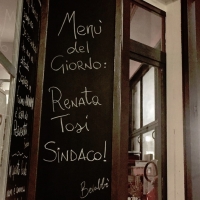 Menù
del
GIORNO:
RENATA
TOSI
SINDACO!